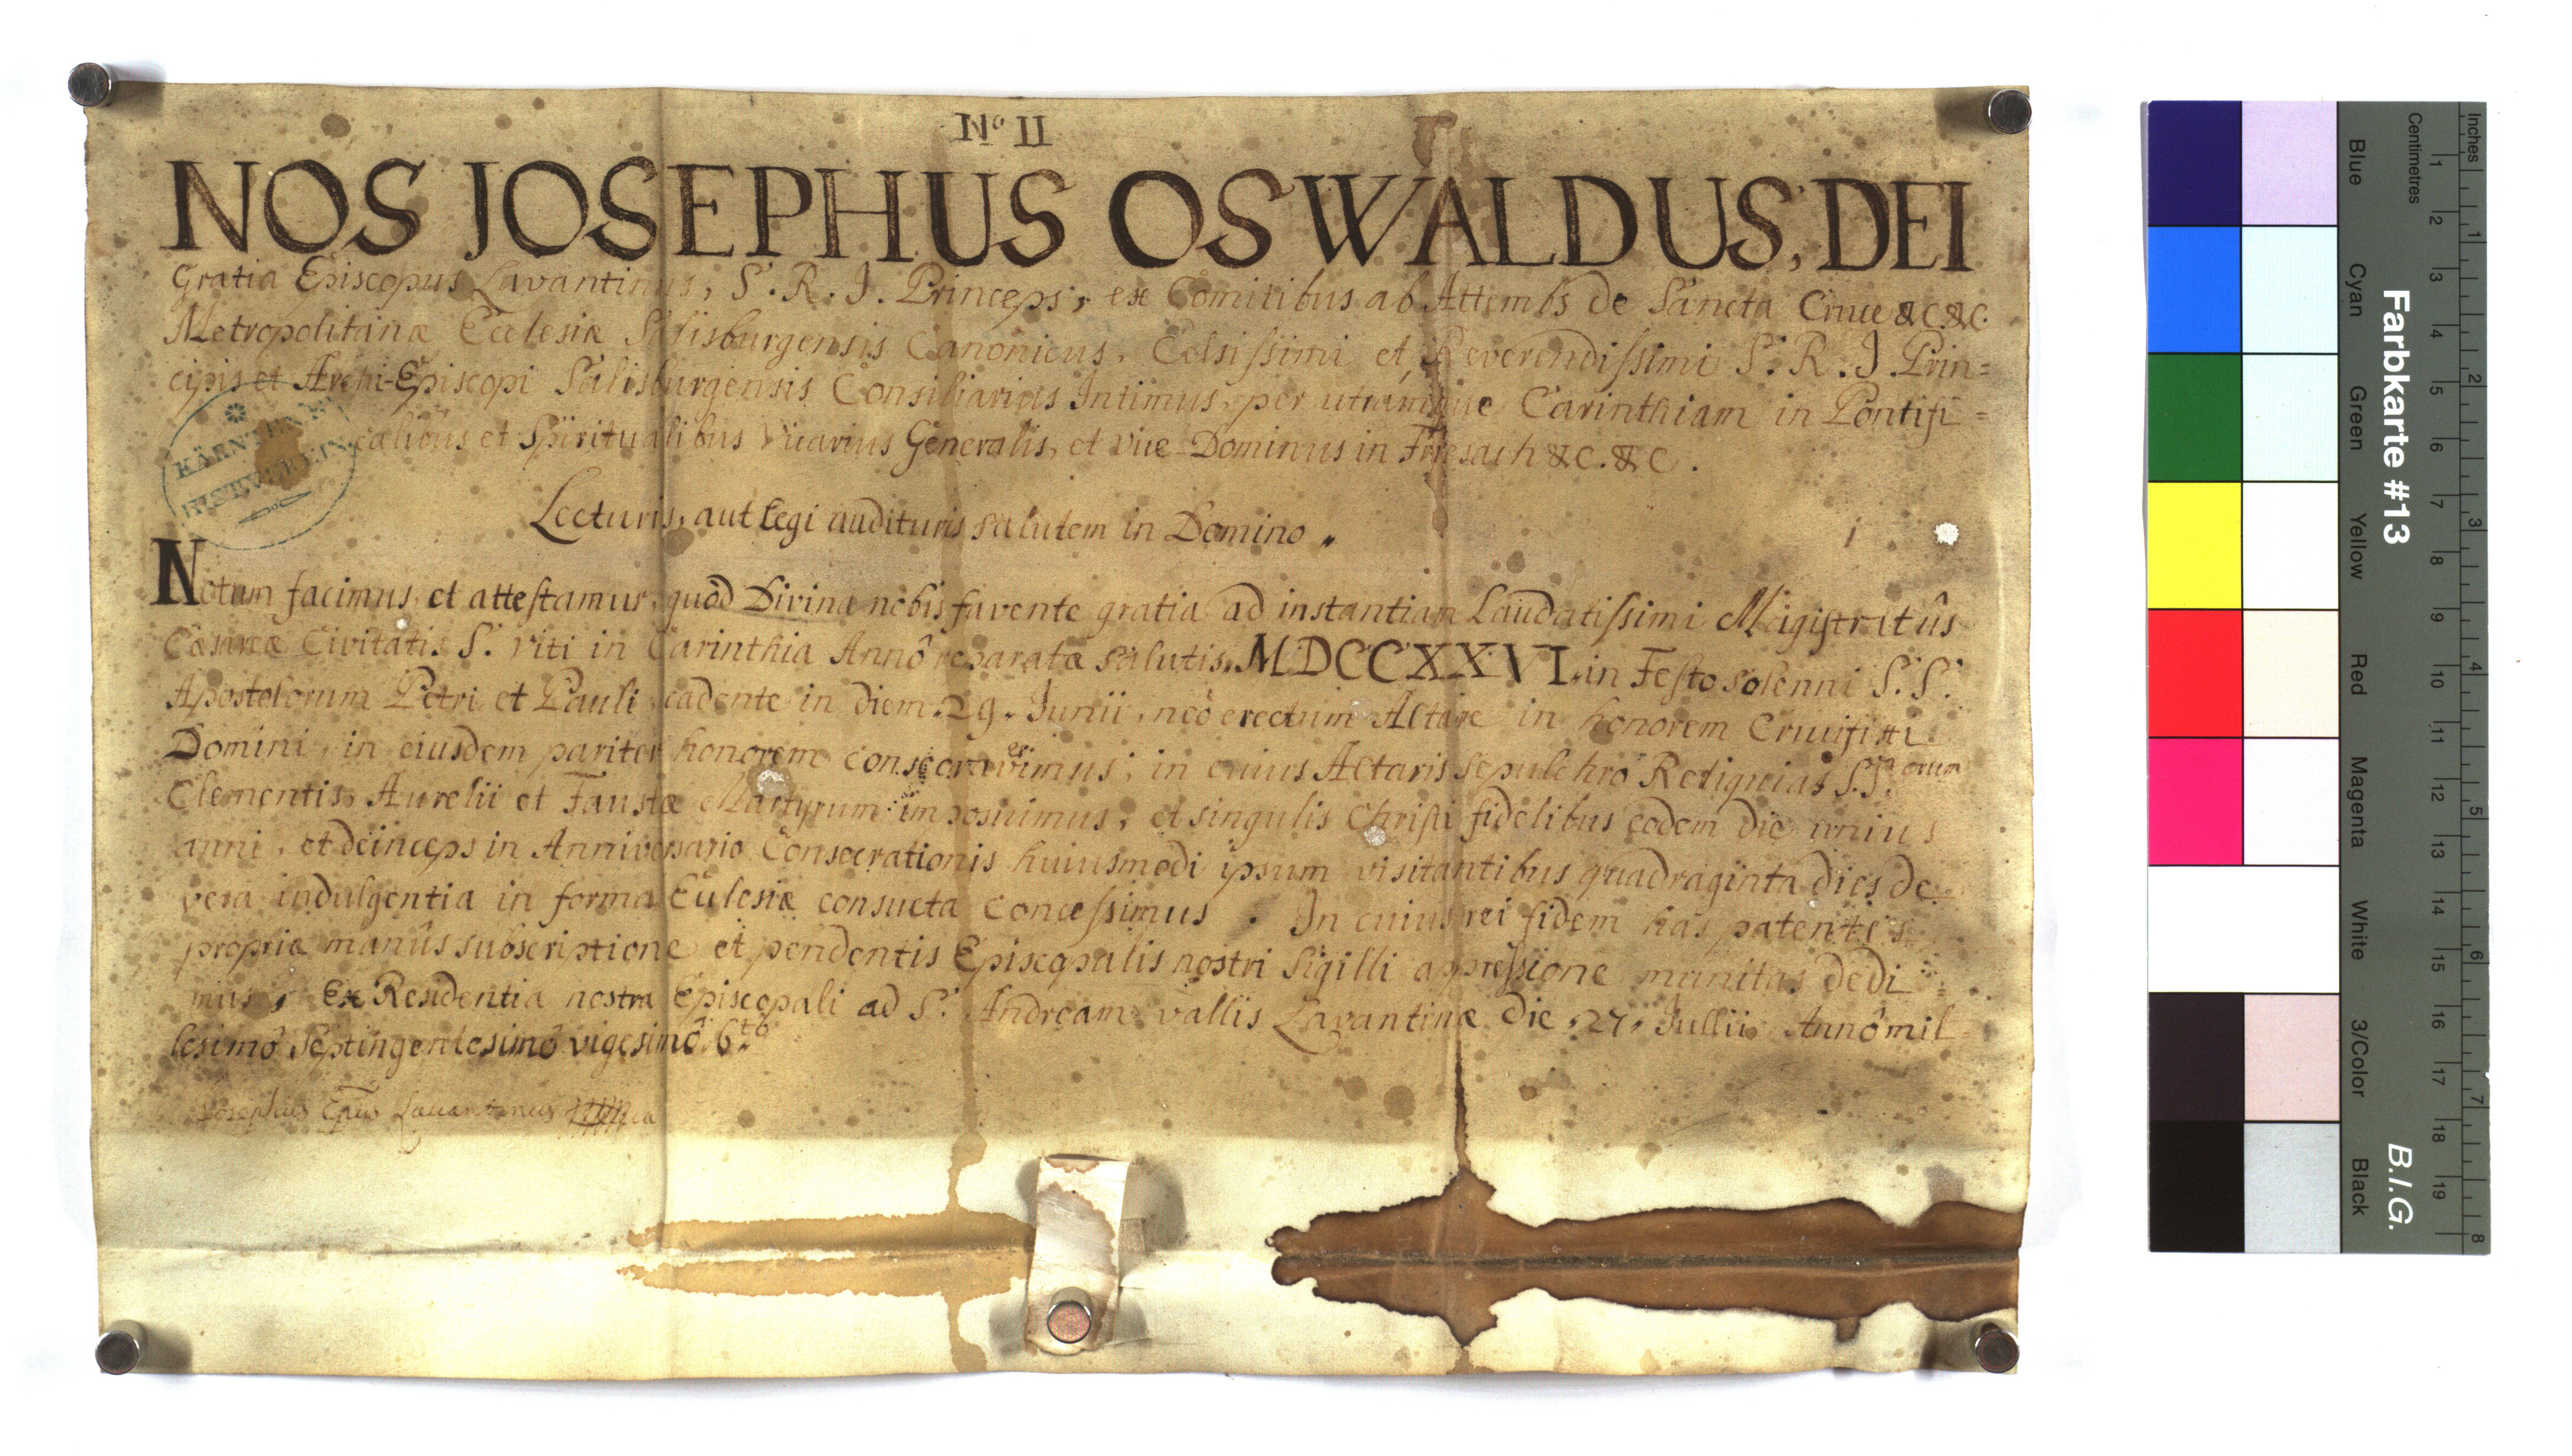 No II
NOS JOSEPHUS OSWALDUS, DEI
Gratia Episcopus Lavantinus, S. R. J. Princeps, ex Comitibus ab Attembs de Sancta Cruce &c. &c.
Metropolitanæ Ecclesiæ Salisburgensis Canonicus, Celsissimi et Reverendissimi S. R. J. Prin=
cipis et Archi-Episcopi Salisburgensis Consiliarius Intimus, per utramque Carinthiam in Pontifi=
calibus et Spiritualibus Vicarius Generalis, et Vice-Dominus in Friesach &c. &c.
KÄRNTEN
HIST. VEREIN
Lecturis, aut legi audituris salutem in Domino
Notum facimus et attestamur, quod Divina nobis favente gratia ad instantiam Laudatissimi Magistratûs
Cæsareæ Civitatis S. Viti in Carinthia Annô reparatæ salutis. MDCCXXVI. in Festo solenni S.S.
Apostolorum Petri et Pauli cadente in diem 29. Junii, neô erectum Altare in honorem Crucifixi
Domini, in eiusdem pariter honorem consecraverimus, in cuius Altaris sepulchrô Reliquias S.S.orum
Clementis, Aurelii et Faustæ Martyrum imposuimus, et singulis Christi fidelibus eodem die unius
anni, et deinceps in Anniversario Consecrationis huiusmodi ipsum visitantibus quadraginta dies de
vera indulgentia in forma Ecclesiæ consueta concessimus. In cuius rei fidem has patentes
propriæ manûs subscriptione et pendentis Episcopalis nostri Sigilli appressione munitas dedi=
mus, Ex Residentia nostra Episcopali ad S. Andream vallis Lavantinæ die 27. Jullii Annô mil=
lesimô Septingentesimô vigesimô 6to
Josephus Epus Lavantinus
Farbkarte #13
B.I.G.
Centimetres
Inches
Blue
Cyan
Green
Yellow
Red
Magenta
White
3/Color
Black
1 2 3 4 5 6 7 8 9 10 11 12 13 14 15 16 17 18 19
1 2 3 4 5 6 7 8